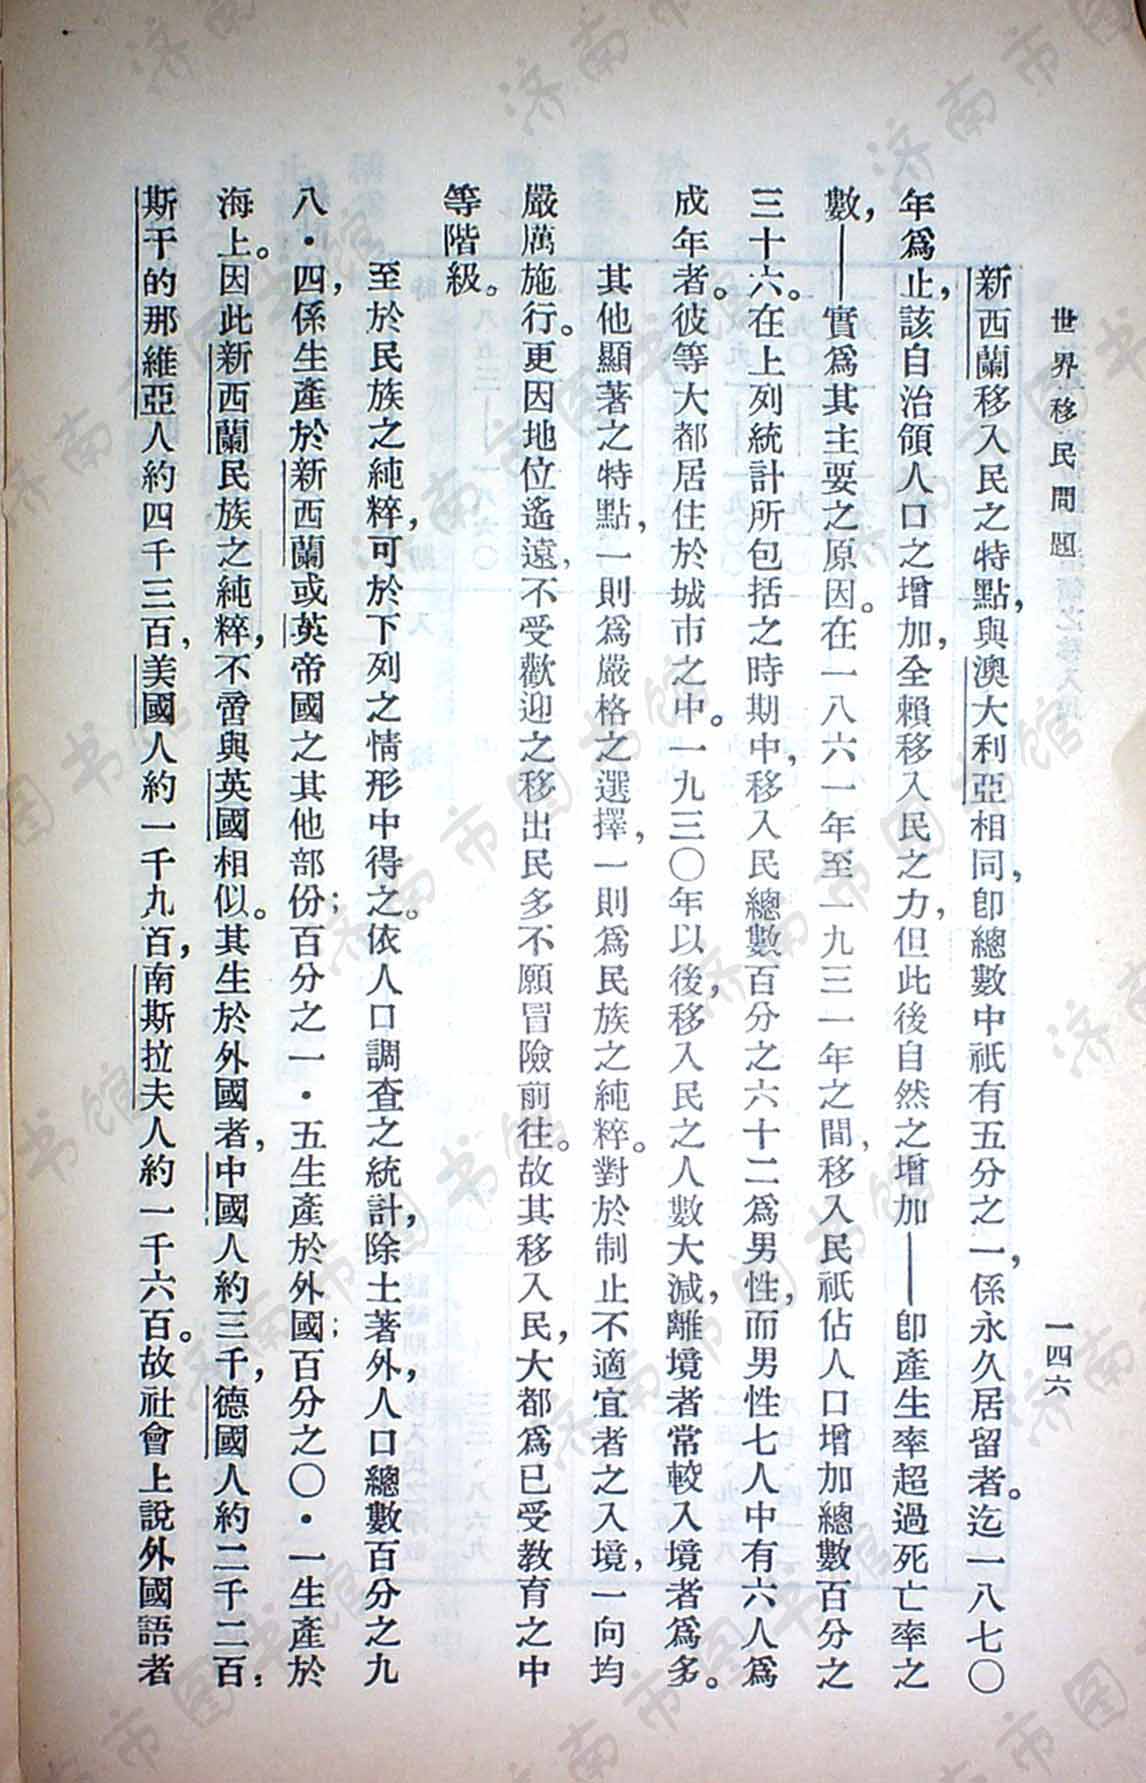 世界移民問題
一四六
新西蘭移入民之特點，與澳大利亞相同，卽總數中祇有五分之一，係永久居留者。迄一八七〇
年爲止，該自治領人口之增加，全賴移入民之力，但此後自然之增加——卽產生率超過死亡率之
數，——實爲其主要之原因。在一八六一年至一九三一年之間，移入民祇佔人口增加總數百分之
三十六。在上列統計所包括之時期中，移入民總數百分之六十二爲男性，而男性七人中有六人爲
成年者。彼等大都居住於城市之中。一九三〇年以後，移入民之人數大減，離境者常較入境者爲多。
其他顯著之特點，一則爲嚴格之選擇，一則爲民族之純粹。對於制止不適宜者之入境，一向均
嚴厲施行。更因地位遙遠，不受歡迎之移出民多不願冒險前往。故其移入民，大都爲已受教育之中
等階級。
至於民族之純粹，可於下列之情形中得之。依人口調查之統計，除土著外，人口總數百分之九
八・四，係生產於新西蘭或英帝國之其他部份；百分之一・五生產於外國；百分之〇・一生產於
海上。因此新西蘭民族之純粹，不啻與英國相似。其生於外國者，中國人約三千，德國人約二千二百；
斯干的那維亞人約四千三百，美國人約一千九百，南斯拉夫人約一千六百。故社會上說外國語者
济南市图书馆